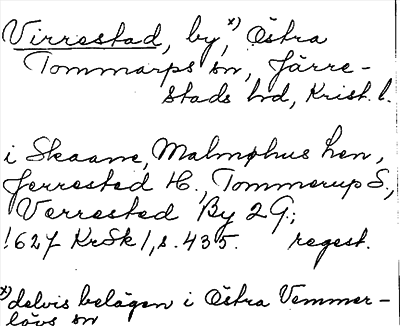 Virrestad, by,ˣ⁾ Östra
Tommarps sn, Järre-
stads hd, Krist. l.
i Skaane, Malmøhus Len,
Jerrested H., Tommerup S.,
Verrested By 2 G.;
1627 KrSk 1, s. 435. regest.
ˣ⁾ delvis belägen i Östra Vemmer-
lövs sn